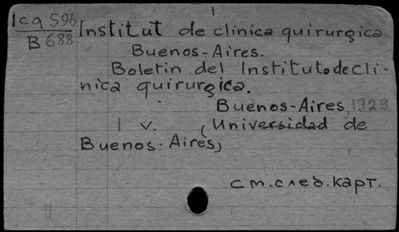 1
Icq 596
B 688
Institut de clinica quirurgica
Buenos-Aires.
Boletin del Instituto de Cli-
nica quirurgica.
Buenos-Aires, 1929
1 v. (Universidad de
Buenos-Aires,
см. след. карт.